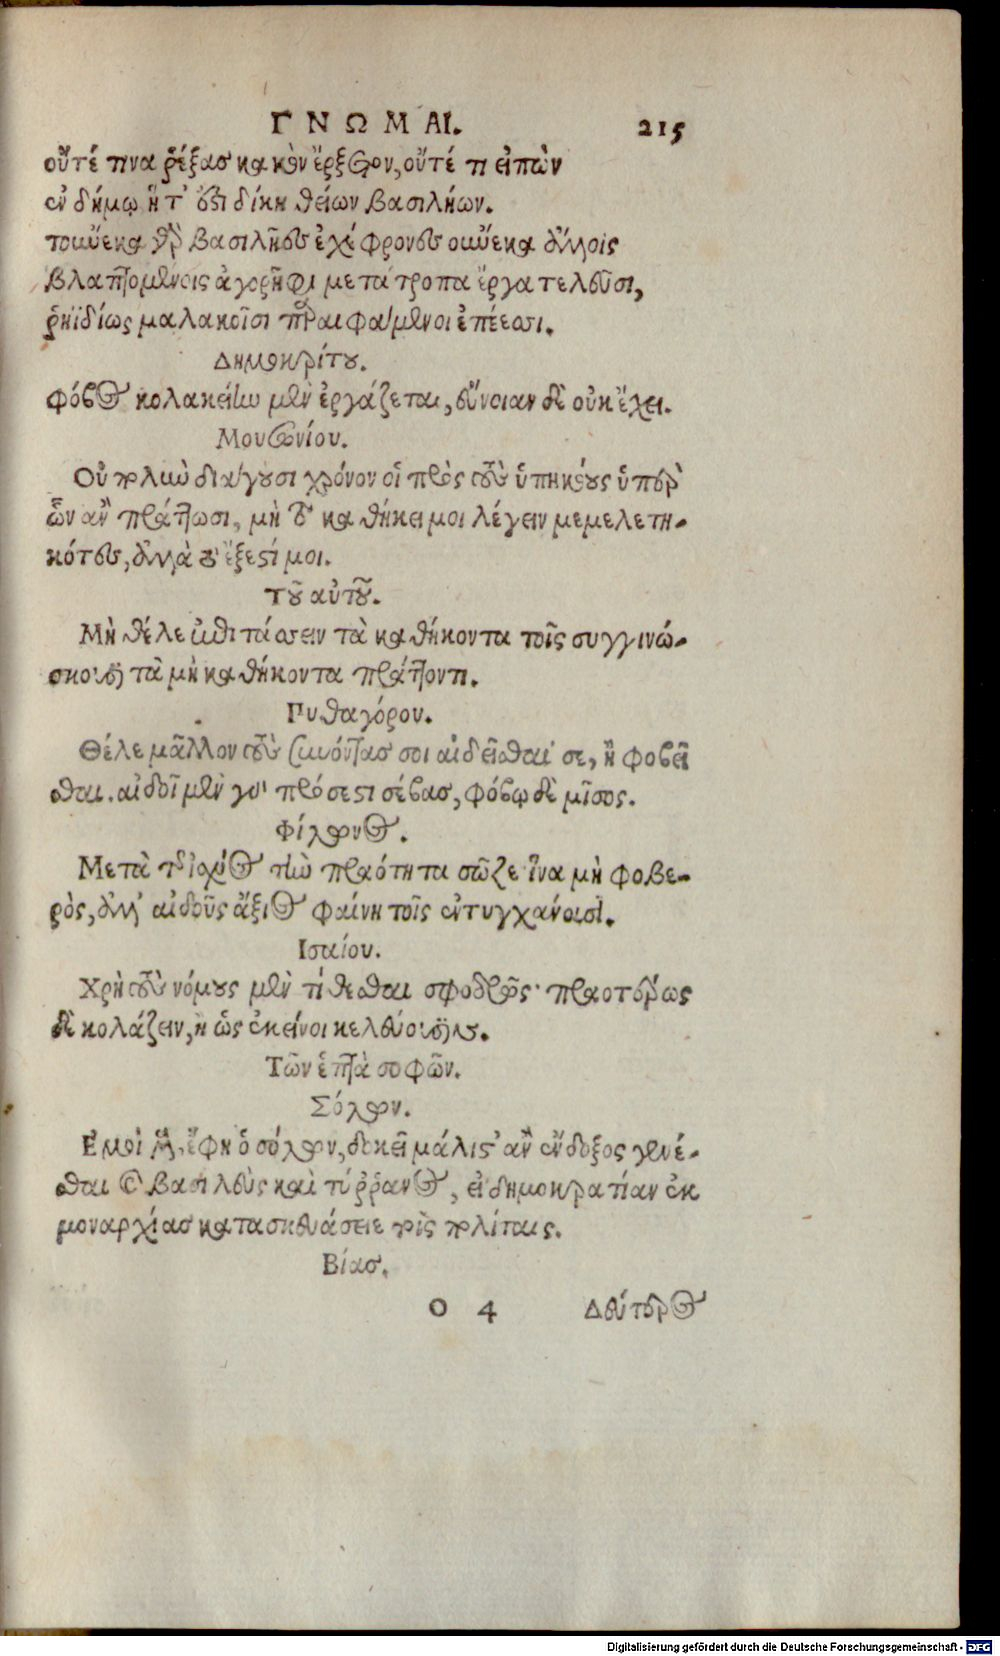 ΓΝΩΜΑΙ. 215
οὔτέ τινα ῥέξας κακὸν ἔρξαντον, οὔτέ τι εἰπὼν
ἐν δήμῳ ἥ τ' ἐστὶ δίκη θείων βασιλήων.
τοὔνεκα γὰρ βασιλῆες ἐχέφρονες οὕνεκα ἀλλοις
βλαπτομένοις ἀγορῆφι μετάτροπα ἔργα τελεῦσι,
ῥηϊδίως μαλακοῖσι παραιφάμενοι ἐπέεσσι.
Δημοκρίτου.
Φόβος κολακείην μὲν ἐργάζεται, εὔνοιαν δὲ οὐκ ἔχει.
Μουσωνίου.
Οὐ πολὺν διάγουσι χρόνον οἱ πρὸς τοὺς ὑπηκόους ὑπὲρ
ὧν ἂν πράττωσι, μὴ τὸ καθήκει μοι λέγειν μεμελετη-
κότες, ἀλλὰ τὸ ἔξεστί μοι.
Τοῦ αὐτοῦ.
Μὴ θέλε ἐπιτάσσειν τὰ καθήκοντα τοῖς συγγινώ-
σκουσι τὰ μὴ καθήκοντα πράττοντι.
Πυθαγόρου.
Θέλε μᾶλλον τοὺς συνόντας σοι αἰδεῖσθαί σε, ἢ φοβεῖ
σθαι. αἰδοῖ μὲν γὰρ πρόσεστι σέβας, φόβῳ δὲ μῖσος.
Φίλωνος.
Μετὰ τῆς ἰσχύος τὴν πραότητα σῶζε ἵνα μὴ φοβε-
ρὸς, ἀλλ' αἰδοῦς ἄξιος φαίνῃ τοῖς ἐντυγχάνουσι.
Ισαίου.
Χρὴ τοὺς νόμους μὲν τίθεσθαι σφοδρῶς· πραοτέρως
δὲ κολάζειν, ἢ ὡς ἐκεῖνοι κελεύουσιν.
Τῶν ἑπτὰ σοφῶν.
Σόλων.
Εμοὶ μὲν, ἔφη ὁ σόλων, δοκεῖ μάλιστ' ἂν ἔνδοξος γενέ-
σθαι καὶ βασιλεὺς καὶ τύραννος, εἰ δημοκρατίαν ἐκ
μοναρχίας κατασκευάσειε τοῖς πολίταις.
Βίας.
ο 4 Δεύτερος
Digitalisierung gefördert durch die Deutsche Forschungsgemeinschaft - DFG